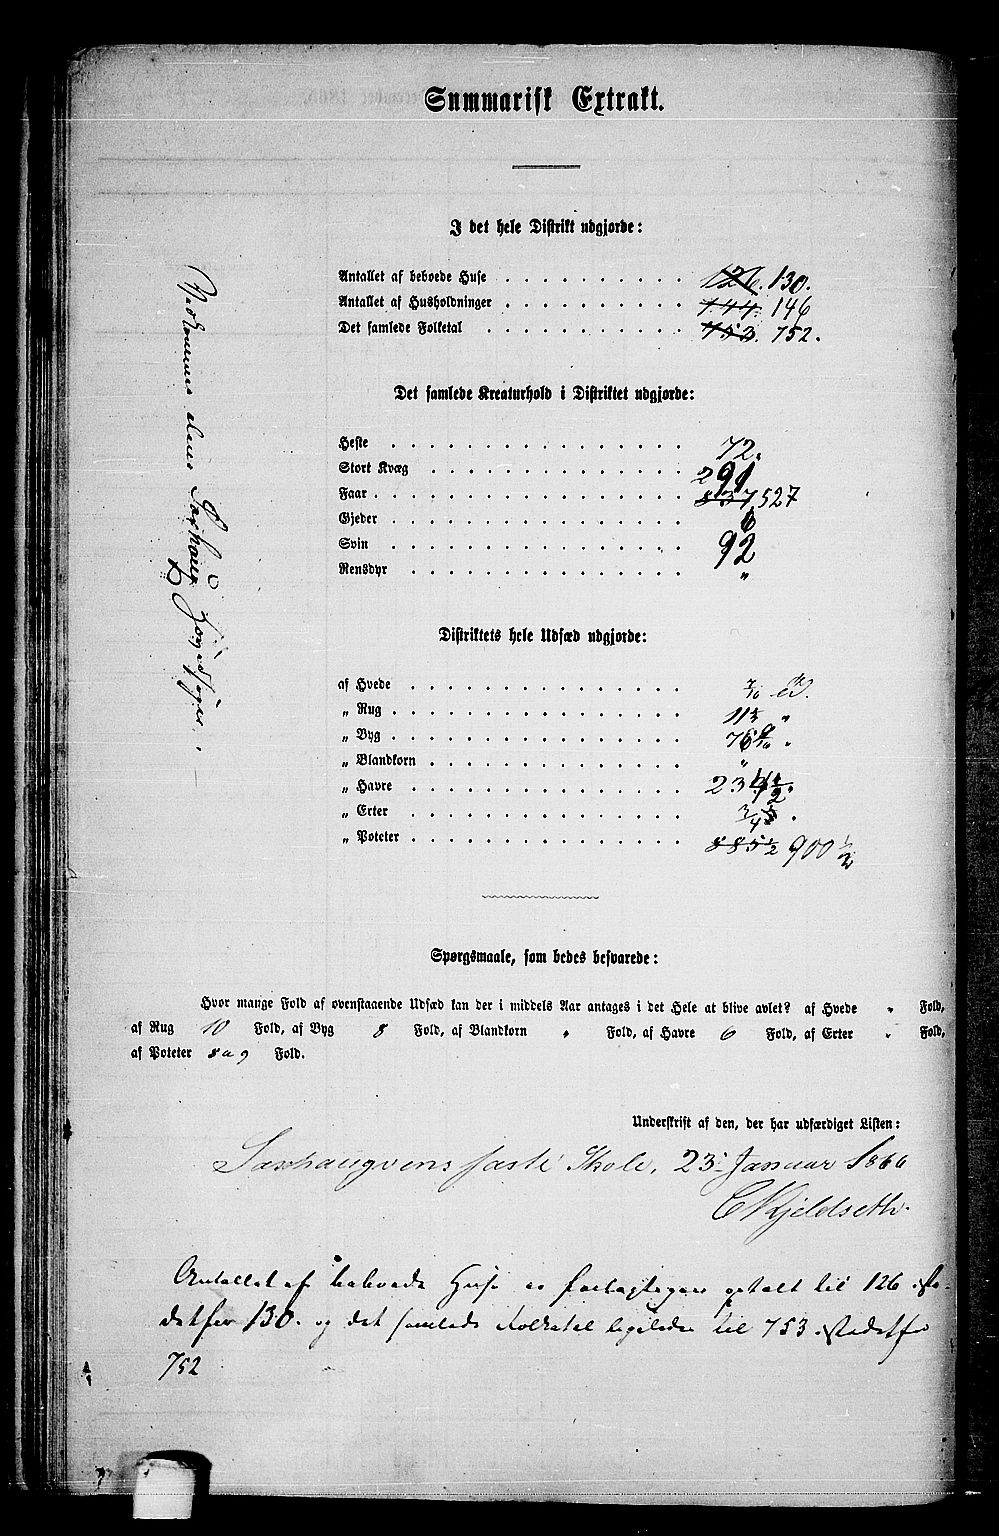 Summarisk Extrakt.
I det hele Distrikt udgjorde:
Antallet af beboede Huse . . . . . . . . . . 126. 130.
Antallet af Husholdninger . . . . . . . . . . 144. 146
Det samlede Folketal . . . . . . . . . . . 753. 752.
Det samlede Kreaturhold i Distriktet udgjorde:
Heste . . . . . . . . . . . . . . . 72.
Stort Kvæg . . . . . . . . . . . . . 291
Faar . . . . . . . . . . . . . . . . 527
Gjeder . . . . . . . . . . . . . . .
Svin . . . . . . . . . . . . . . . 92
Rensdyr . . . . . . . . . . . . . . "
Distriktets hele Udsæd udgjorde:
af Hvede . . . . . . . . . . . . . .
„ Rug . . . . . . . . . . . . . . .
„ Byg . . . . . . . . . . . . . . . 76
„ Blandkorn . . . . . . . . . . . . . "
„ Havre . . . . . . . . . . . . . . 23
„ Erter . . . . . . . . . . . . . .
„ Poteter . . . . . . . . . . . . . 885½ 900½
Spørgsmaale, som bedes besvarede:
Hvor mange Fold af ovenstaaende Udsæd kan der i middels Aar antages i det Hele at blive avlet? af Hvede " Fold,
af Rug 10 Fold, af Byg 8 Fold, af Blandkorn " Fold, af Havre 6 Fold, af Erter " Fold,
af Poteter 8 a 9 Fold.
Underskrift af den, der har udfærdiget Listen:
faste Skole, 23 Januar 1866
Antallet af beboede Huse er optalt til 126 ista-
detfor 130. og det samlede Folketal ligeledes til 753 istedetfor
752